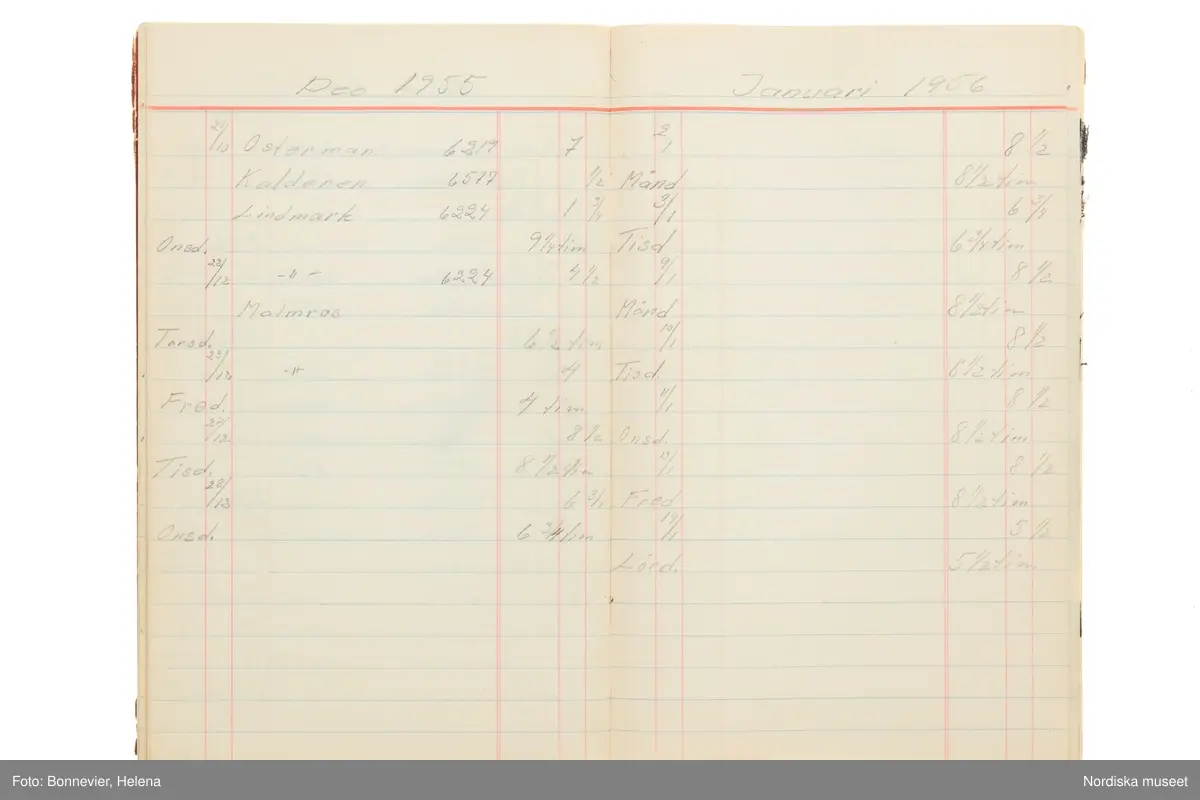 Dec 1955
21/12 Osterman 6219 7
Kalderen 6517 1/2
Lindmark 6224 1 3/4
Onsd. 9 1/4 tim
22/12 -"- 6224 4 1/2
Malmros
Torsd. 6 1/2 tim
23/12 -"- 4
Fred. 4 tim
27/12 8 1/2
Tisd. 8 1/2 tim
28/12 6 3/4
Onsd. 6 3/4 tim
Januari 1956
2/1 8 1/2
Månd 8 1/2 tim
3/1 6 3/4
Tisd 6 3/4 tim
9/1 8 1/2
Månd 8 1/2 tim
10/1 8 1/2
Tisd. 8 1/2 tim
11/1 8 1/2
Onsd. 8 1/2 tim
13/1 8 1/2
Fred 8 1/2 tim
14/1 5 1/2
Lörd. 5 1/2 tim
Foto: Bonnevier, Helena
Nordiska museet